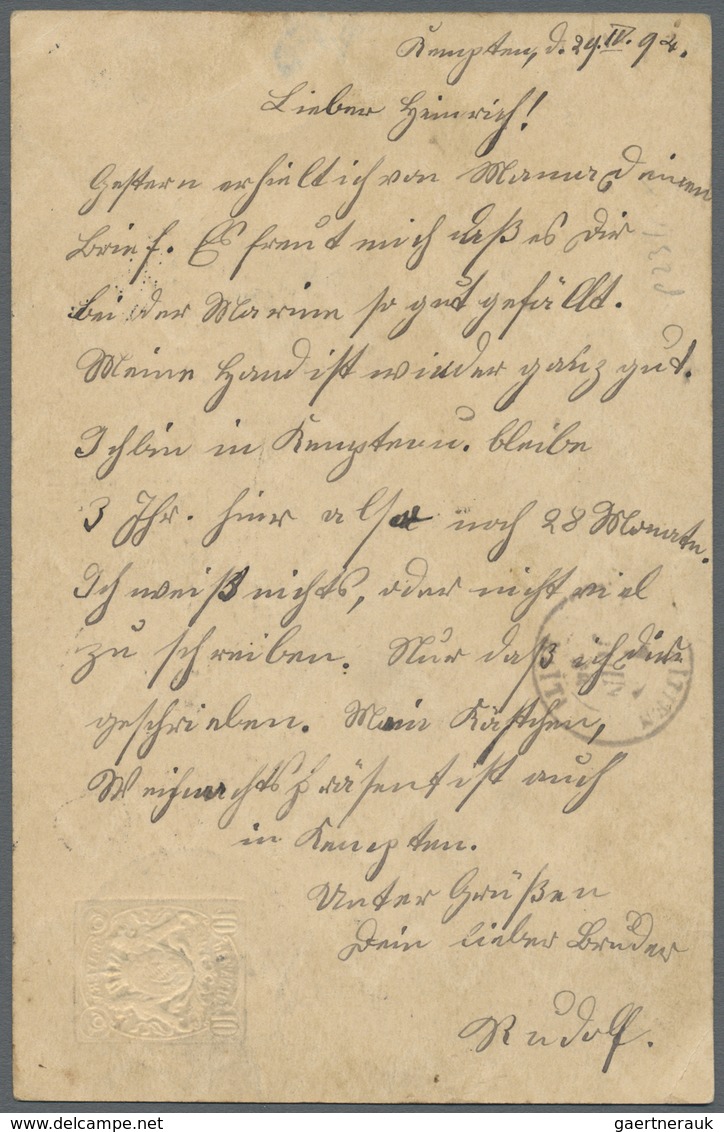 Kempten, d. 29.IV.94.
Lieber Heinrich!
Gestern erhielt ich von Mama Deinen
Brief. Es freut mich daß es Dir
bei der Marine so gut gefällt.
Meine Hand ist wieder ganz gut.
Ich bin in Kempten u. bleibe
3 Jhr. hier also noch 28 Monate.
Ich weiß nichts, oder nicht viel
zu schreiben. Nur daß ich dir
geschrieben. Mein Kästchen,
Weihnachtspräsent ist auch
in Kempten.
Unter Grüßen
Dein lieber Bruder
Rudolf.
gaertnerauk
www.delcampe.net